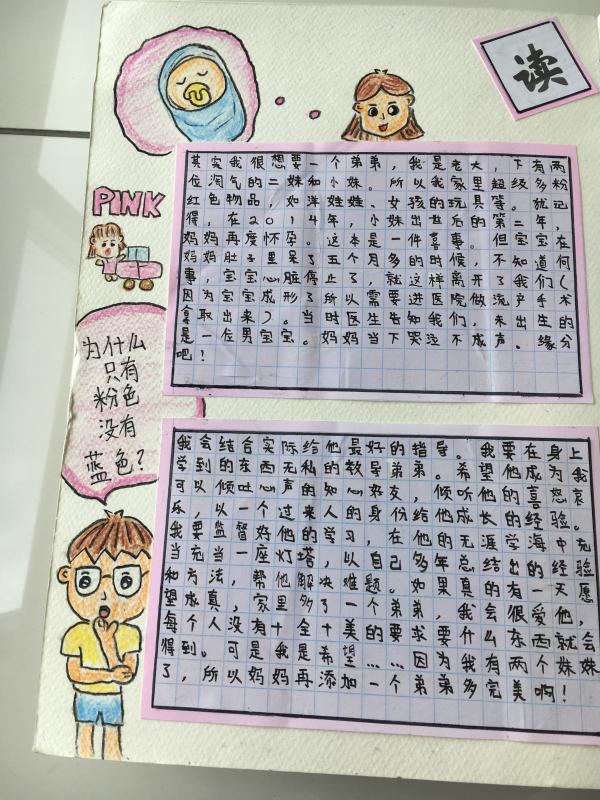 读
其实我很想要一个弟弟，我是老大，下有两
位淘气的二妹和小妹。所以我家里超级多粉
红色物品，如洋娃娃、女孩的玩具等。犹记
得，在2014年，小妹出世后的第二年，
妈妈再度怀孕。这本是一件喜事。但宝宝在
妈妈肚子里呆了五个月多的时候，不知道何
事，宝宝心脏停止了，就这样离开了我们（
因为宝宝成形了所以需要进医院做流产手术
拿取出来）。当时医生告知我们，未出生的
是一位男宝宝。妈妈当下哭泣不成声。缘分
吧！
PINK
为什么
只有
粉色
没有
蓝色？
我会结合实际给他最好的指导。我要在身上
学到的东西无私的教导弟弟。希望他成为我
可以倾吐心声的知心好友，倾听他的喜怒哀
乐，以一个过来人的身份给他成长的经验。
我要监督好他的学习，在他的无涯学海中充
当充当一座灯塔，以自己多年总结出的经验
和方法，帮他解决难题。如果真的有一天愿
望成真，家里多了一个弟弟，我会很爱他，
每个人没有十全十美的要求要什么东西就会
得到。可是我是希望……因为我有两个妹妹
了，所以妈妈再添加一个弟弟多完美啊！